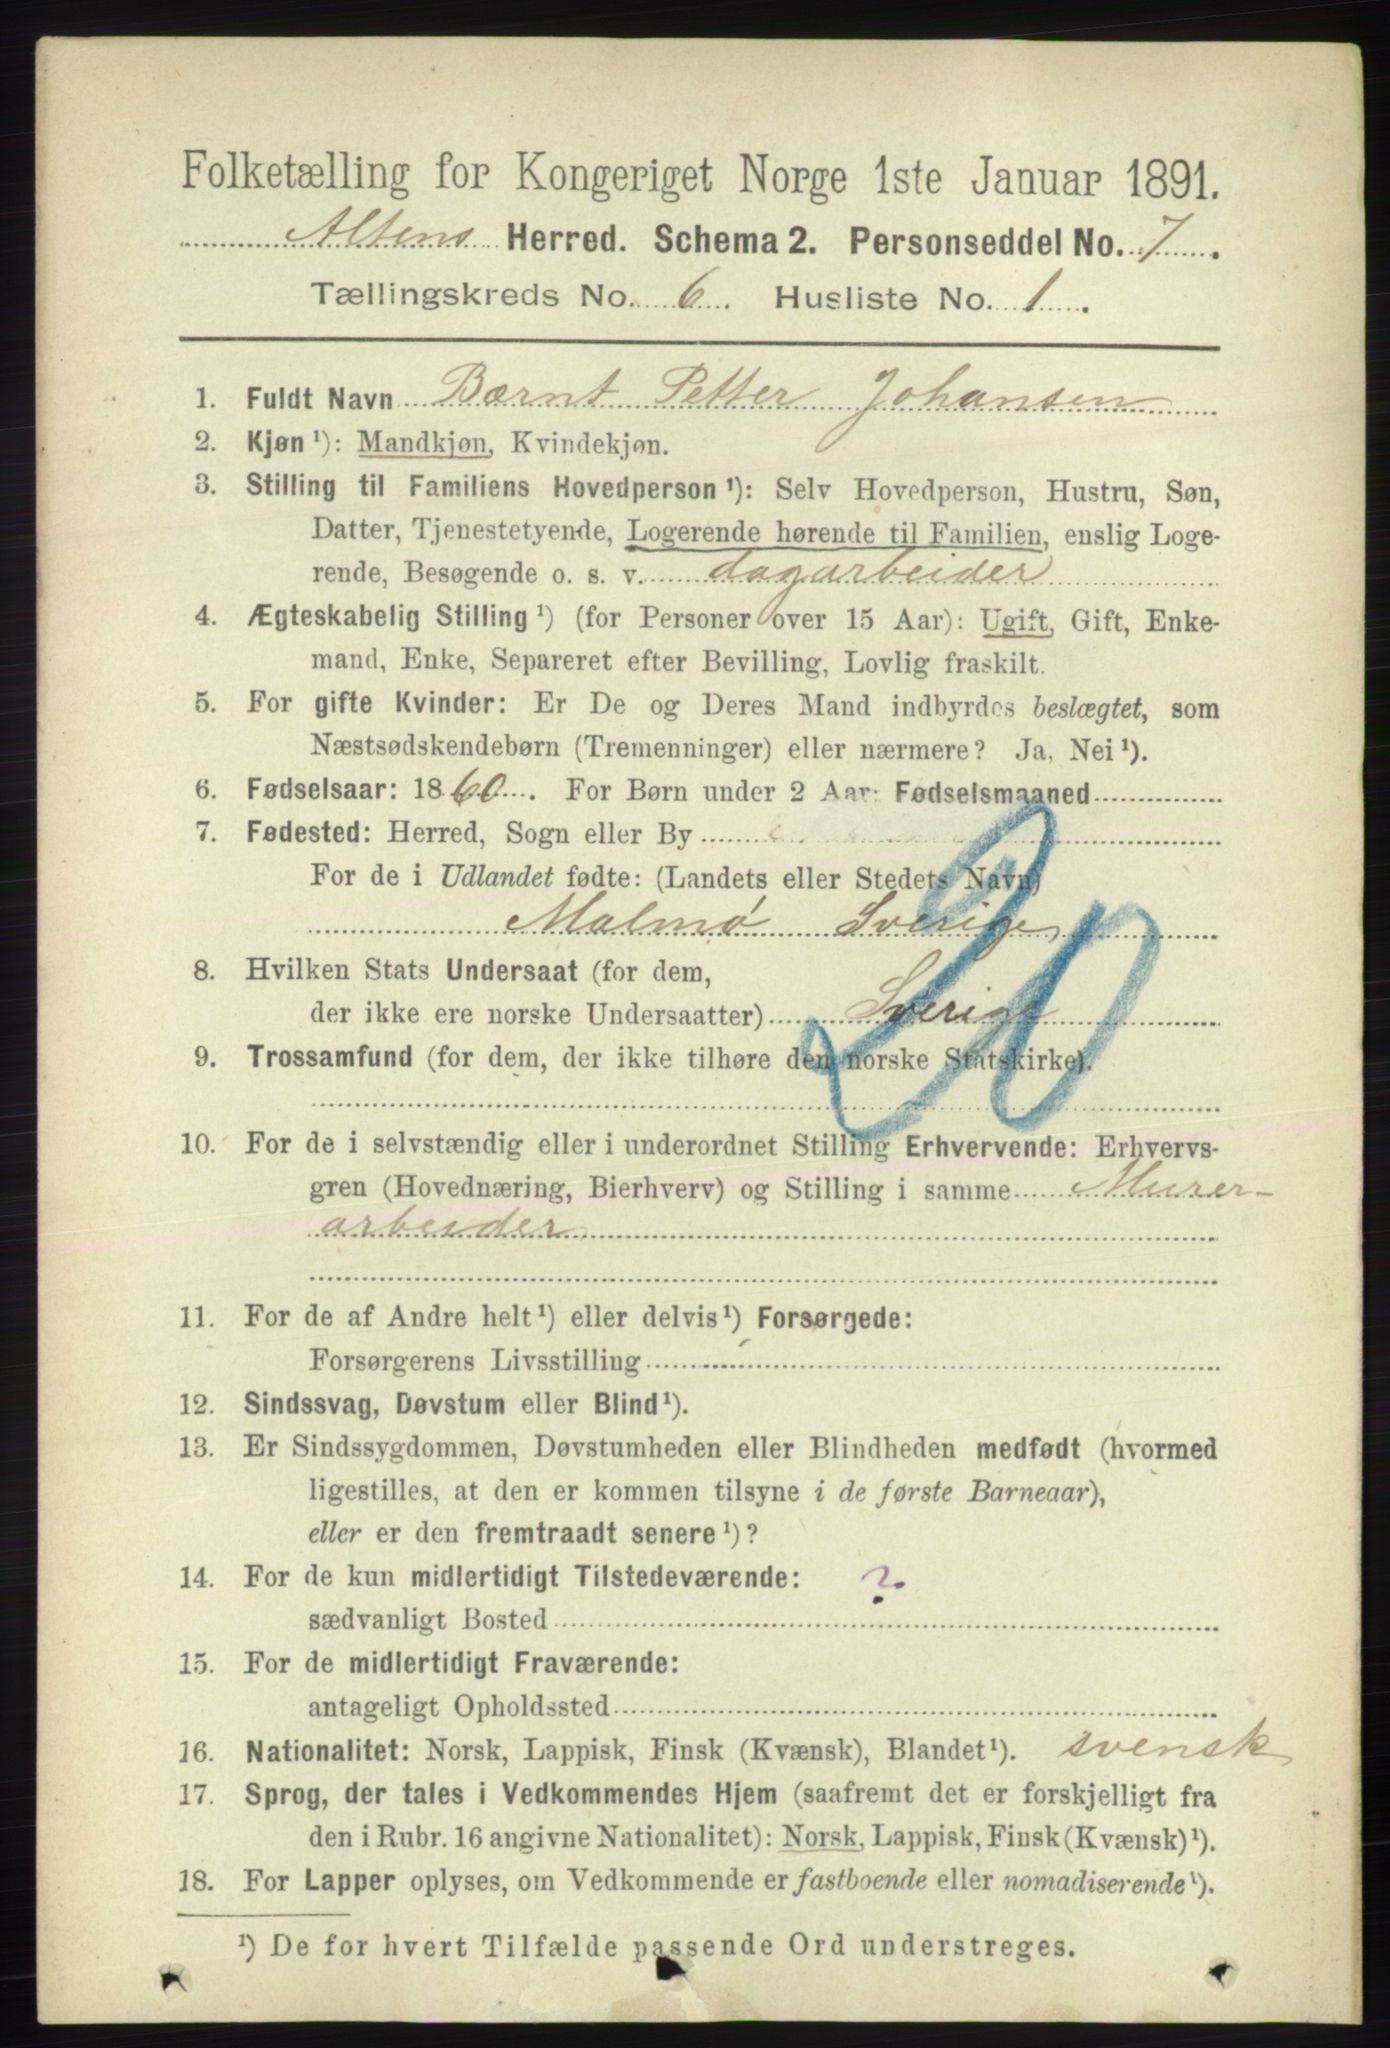 Folketælling for Kongeriget Norge 1ste Januar 1891.
Altens Herred. Schema 2. Personseddel No. 7.
Tællingskreds No. 6. Husliste No. 1.
1. Fuldt Navn Bærnt Petter Johansen
2. Kjøn ¹): Mandkjøn, Kvindekjøn.
3. Stilling til Familiens Hovedperson ¹): Selv Hovedperson, Hustru, Søn,
Datter, Tjenestetyende, Logerende hørende til Familien, enslig Loge-
rende, Besøgende o. s. v. dagarbeider
4. Ægteskabelig Stilling ¹) (for Personer over 15 Aar): Ugift, Gift, Enke-
mand, Enke, Separeret efter Bevilling, Lovlig fraskilt.
5. For gifte Kvinder: Er De og Deres Mand indbyrdes beslægtet, som
Næstsødskendebørn (Tremenninger) eller nærmere? Ja, Nei ¹).
6. Fødselsaar: 1860. For Børn under 2 Aar: Fødselsmaaned
7. Fødested: Herred, Sogn eller By
For de i Udlandet fødte: (Landets eller Stedets Navn)
Malmø Sverige
20
8. Hvilken Stats Undersaat (for dem,
der ikke ere norske Undersaatter) Sverige
9. Trossamfund (for dem, der ikke tilhøre den norske Statskirke).
10. For de i selvstændig eller i underordnet Stilling Erhvervende: Erhvervs-
gren (Hovednæring, Bierhverv) og Stilling i samme Murer-
arbeider
11. For de af Andre helt ¹) eller delvis ¹) Forsørgede:
Forsørgerens Livsstilling
12. Sindssvag, Døvstum eller Blind ¹).
13. Er Sindssygdommen, Døvstumheden eller Blindheden medfødt (hvormed
ligestilles, at den er kommen tilsyne i de første Barneaar),
eller er den fremtraadt senere ¹)?
14. For de kun midlertidigt Tilstedeværende: ?
sædvanligt Bosted
15. For de midlertidigt Fraværende:
antageligt Opholdssted
16. Nationalitet: Norsk, Lappisk, Finsk (Kvænsk), Blandet ¹). svensk
17. Sprog, der tales i Vedkommendes Hjem (saafremt det er forskjelligt fra
den i Rubr. 16 angivne Nationalitet): Norsk, Lappisk, Finsk (Kvænsk) ¹).
18. For Lapper oplyses, om Vedkommende er fastboende eller nomadiserende ¹).
¹) De for hvert Tilfælde passende Ord understreges.